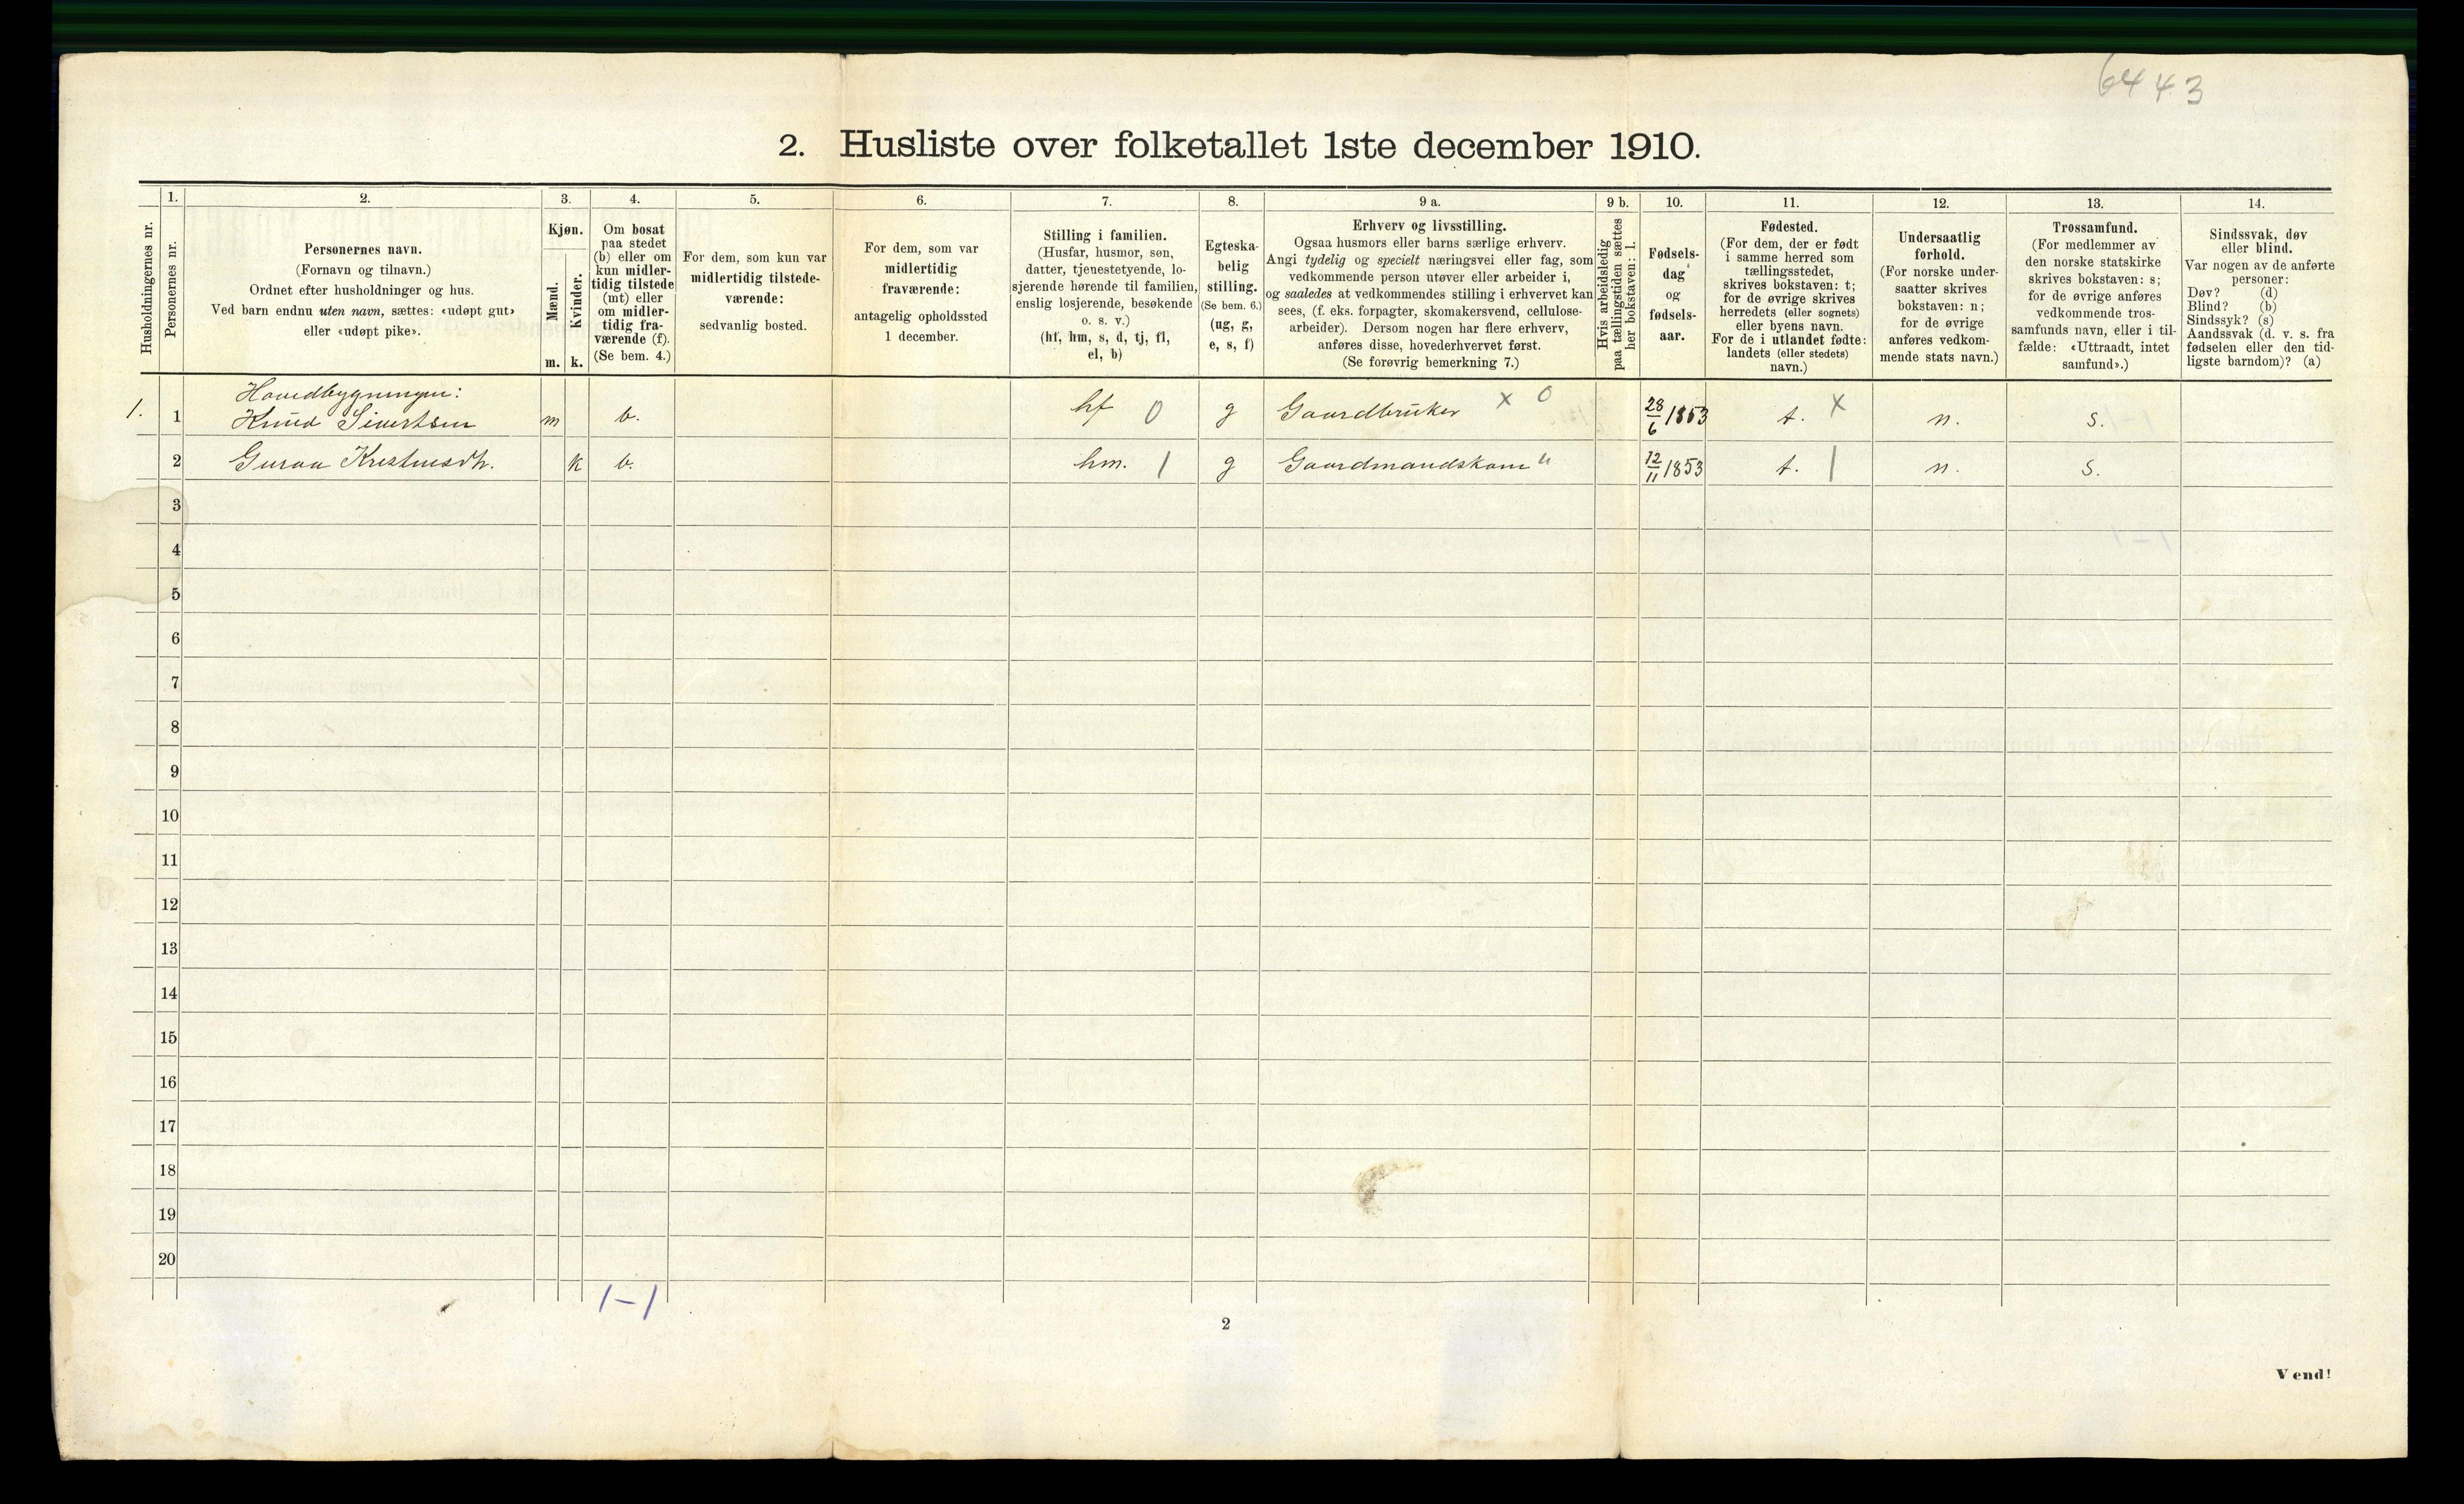 6443
2. Husliste over folketallet 1ste december 1910.
Husholdningernes nr.
1.
Personernes nr.
2.
Personernes navn.
(Fornavn og tilnavn.)
Ordnet efter husholdninger og hus.
Ved barn endnu uten navn, sættes: «udøpt gut»
eller «udøpt pike».
3.
Kjøn.
Mænd.
m.
Kvinder.
k.
4.
Om bosat
paa stedet
(b) eller om
kun midler-
tidig tilstede
(mt) eller
om midler-
tidig fra-
værende (f).
(Se bem. 4.)
5.
For dem, som kun var
midlertidig tilstede-
værende:
sedvanlig bosted.
6.
For dem, som var
midlertidig
fraværende:
antagelig opholdssted
1 december.
7.
Stilling i familien.
(Husfar, husmor, søn,
datter, tjenestetyende, lo-
sjerende hørende til familien,
enslig losjerende, besøkende
o. s. v.)
(hf, hm, s, d, tj, fl,
el, b)
8.
Egteska-
belig
stilling.
(Se bem. 6.)
(ug, g,
e, s, f)
9 a.
Erhverv og livsstilling.
Ogsaa husmors eller barns særlige erhverv.
Angi tydelig og specielt næringsvei eller fag, som
vedkommende person utøver eller arbeider i,
og saaledes at vedkommendes stilling i erhvervet kan
sees, (f. eks. forpagter, skomakersvend, cellulose-
arbeider). Dersom nogen har flere erhverv,
anføres disse, hovederhvervet først.
(Se forøvrig bemerkning 7.)
9 b.
Hvis arbeidsledig
paa tællingstiden sættes
her bokstaven: l.
10.
Fødsels-
dag
og
fødsels-
aar.
11.
Fødested.
(For dem, der er født
i samme herred som
tællingsstedet,
skrives bokstaven: t;
for de øvrige skrives
herredets (eller sognets)
eller byens navn.
For de i utlandet fødte:
landets (eller stedets)
navn.)
12.
Undersaatlig
forhold.
(For norske under-
saatter skrives
bokstaven: n;
for de øvrige
anføres vedkom-
mende stats navn.)
13.
Trossamfund.
(For medlemmer av
den norske statskirke
skrives bokstaven: s;
for de øvrige anføres
vedkommende tros-
samfunds navn, eller i til-
fælde: «Uttraadt, intet
samfund».)
14.
Sindssvak, døv
eller blind.
Var nogen av de anførte
personer:
Døv? (d)
Blind? (b)
Sindssyk? (s)
Aandssvak (d. v. s. fra
fødselen eller den tid-
ligste barndom)? (a)
Hovedbygningen:
1. 1 Knud Sivertsen m b. hf 0 g Gaardbruker x 0 28/6 1853 t. x n. s.
2 Guraa Krestnesdtr. k b. hm. 1 g Gaardmandskone " 12/11 1853 t. | n. s.
3
4
5
6
7
8
9
10
11
12
13
14
15
16
17
18
19
20
1-1
2
Vend!